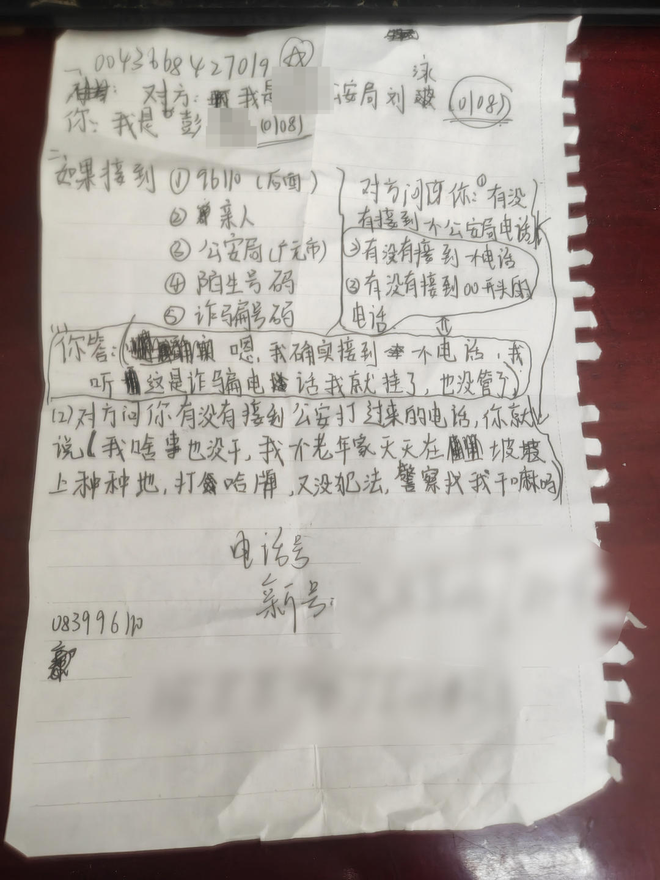 一、0043668427019 A
对方: 我是 安局刘泳 (0108)
你: 我是彭 (0108)
二、如果接到 ① 96110 (后面)
② 亲人
③ 公安局 (广元市)
④ 陌生号码
⑤ 诈骗号码
对方问你: ① 有没
有接到个公安局电话
② 有没有接到个电话
③ 有没有接到00开头的
电话
(1) 你答: 嗯,我确实接到一个电话,我
听这是诈骗电话我就挂了,也没管了
(2) 对方问你有没有接到公安打过来的电话,你就
说(我啥事也没干,我个老年家天天在坡
上种种地,打哈牌,又没犯法,警察找我干嘛吗
电话号
新号:
083996110